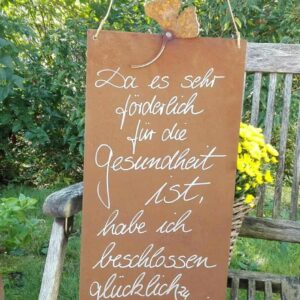 Da es sehr
förderlich
für die
Gesundheit
ist,
habe ich
beschlossen
glücklich zu